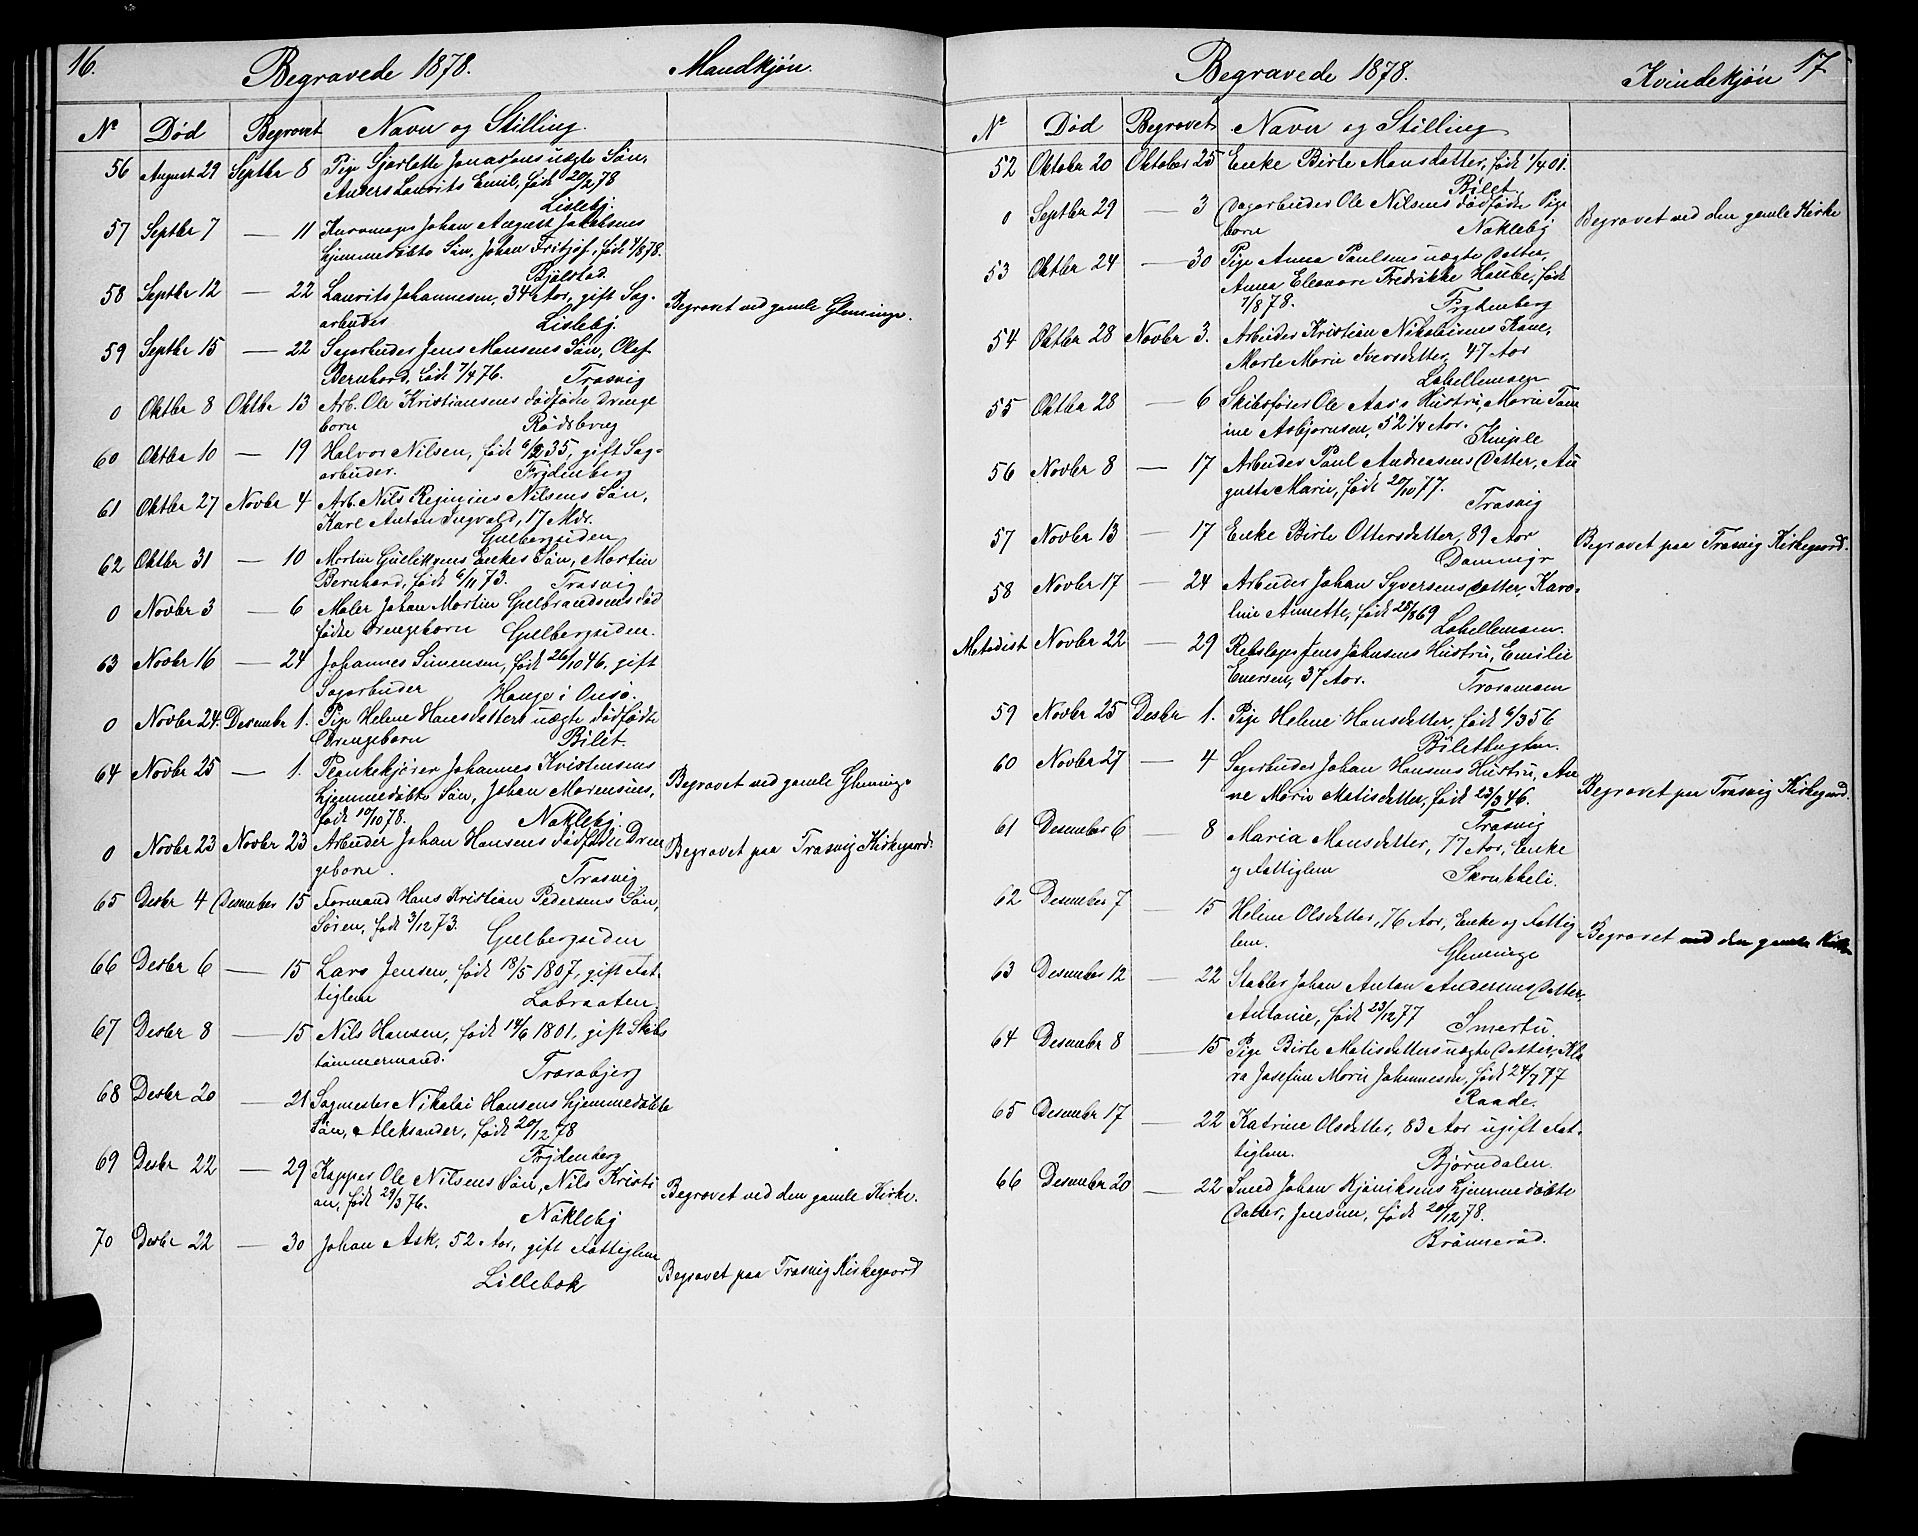 16.
Begravede 1878. Mandkjøn.
No Død Begravet Navn og Stilling.
56 August 29 Septbr 8 Pige Sjarlotte Jonassens uægte Søn,
Anders Lavrits Emil, født 20/2 78
Lisleby.
57 Septbr 7 — 11 Kurvmager Johan August Jakobsens
hjemmedøbte Søn, Johan Fritjof, født 4/8 78.
Bjølstad.
58 Septbr 12 — 22 Laurits Johannesen, 34 Aar, gift Sag-
arbeider Lisleby. Begravet ved gamle Glemminge.
59 Septbr 15 — 22 Sagarbeider Jens Hansens Søn, Olaf
Bernhard, født 7/4 76. Trosvig
0 Oktbr 8 Oktbr 13 Arb. Ole Kristiansens dødfødte Drenge
born Rødsbrug
60 Oktbr 10 — 19 Halvor Nilsen, født 35, gift Sag-
arbeider. Frydenberg
61 Oktbr 27 Novbr 4 Arb. Nils Reginius Nilsens Søn,
Karl Anton Ingvald, 17 Mdr.
Gulbergsiden
62 Oktbr 31 — 10 Martin Gulliksens Enkes Søn, Martin
Bernhard, født 6/11 73. Trosvig
0 Novbr 3 — 6 Maler Johan Martin Gulbrandsens død
fødte Drengeborn Gulbergsiden.
63 Novbr 16 — 24 Johannes Simensen, født 26/10 46, gift
Sagarbeider Hauge i Onsø.
0 Novbr 24. Desember 1. Pige Helene Hansdatters uægte dødfødte
Drengeborn Bilet.
64 Novbr 25 — 1. Plankekjører Johannes Kristensens
hjemmedøbte Søn, Johan Marensius,
født 10/10 78. Nøkleby. Begravet ved gamle Glemminge
0 Novbr 23 Novbr 23 Arbeider Johan Hansens dødfødte Dren
geborn. Trosvig Begravet paa Trosvig Kirkegaard.
65 Desbr 4 Desember 15 Formand Hans Kristian Pedersens Søn,
Søren, født 3/12 73. Gulbergsiden
66 Desbr 6 — 15 Lars Jensen, født 18/5 1807, gift Fat-
tiglem Labraaten.
67 Desbr 8 — 15 Nils Hansen, født 14/6 1801, gift Skibs
tømmermand. Trarabjerg
68 Desbr 20 — 21 Sagmester Nikolai Hansens hjemmedøbte
Søn, Aleksander, født 20/12 78
Frydenberg
69 Desbr 22 — 29 Kapper Ole Nilsens Søn, Nils Kristi
an, født 29/3 76. Nøkleby Begravet ved den gamle Kirke.
70 Desbr 22 — 30 Johan Ask, 52 Aar, gift Fattiglem
Lillebæk Begravet paa Trosvig Kirkegaard
17
Begravede 1878. Kvindekjøn
No Død Begravet Navn og Stilling
52 Oktober 20 Oktober 25 Enke Birte Hansdatter, født 1/4 01.
Bilet.
0 Septbr 29 — 3 Sagarbeider Ole Nilsens dødfødte Pige
born Nøkleby Begravet ved den gamle Kirke
53 Oktbr 24 — 30 Pige Anna Paulsens uægte Datter,
Anna Eleonore Fredrikke Haube, født
7/8 78. Frydenberg
54 Oktbr 28 Novbr 3. Arbeider Kristian Nikolaisens Kone,
Marte Marie Iversdatter, 47 Aar
Labellemoen
55 Oktbr 28 — 6 Skibsfører Ole Aas's Hustru, Marie Tom
ine Asbjørnsen, 52 1/4 Aar.
Kniple
56 Novbr 8 — 17 Arbeider Paul Andreasens Datter, Au
gusta Marie, født 20/10 77.
Trosvig
57 Novbr 13 — 17 Enke Birte Ottersdatter, 89 Aar
Dammyr Begravet paa Trosvig Kirkegaard.
58 Novbr 17 — 24 Arbeider Johan Syversens Datter, Karo-
line Annette, født 25/8 69
Labellemoen.
Metodist Novbr 22 — 29 Rebslager Jens Johnsens Hustru, Emilie
Enersen, 37 Aar. Traramoen
59 Novbr 25 Desbr 1. Pige Helene Hansdatter, født 6/3 56
Biletbugten.
60 Novbr 27 — 4 Sagarbeider Johan Hansens Hustru, An
ne Marie Matisdatter, født 23/3 46.
Trosvig Begravet paa Trosvig Kirkegaard.
61 Desember 6 — 8 Maria Hansdatter, 77 Aar, Enke
og Fattiglem Skrukkeli.
62 Desember 7 — 15 Helene Olsdatter, 76 Aar, Enke og Fattig
lem. Glemminge Begravet ved den gamle Kirke
63 Desember 12 — 22 Stabler Johan Anton Andersens Datter,
Antonie, født 23/12 77 Smertu.
64 Desember 8 — 15 Pige Birte Matisdatters uægte Datter, Kla
ra Josefine Marie Johannesen, født 24/7 77
Raade.
65 Desember 17 — 22 Katrine Olsdatter, 83 Aar ugift Fat-
tiglem. Bjørndalen.
66 Desember 20 — 22 Smed Johan Kjøniksens hjemmedøbte
Datter, Jensine, født 20/12 78.
Brønnerød.